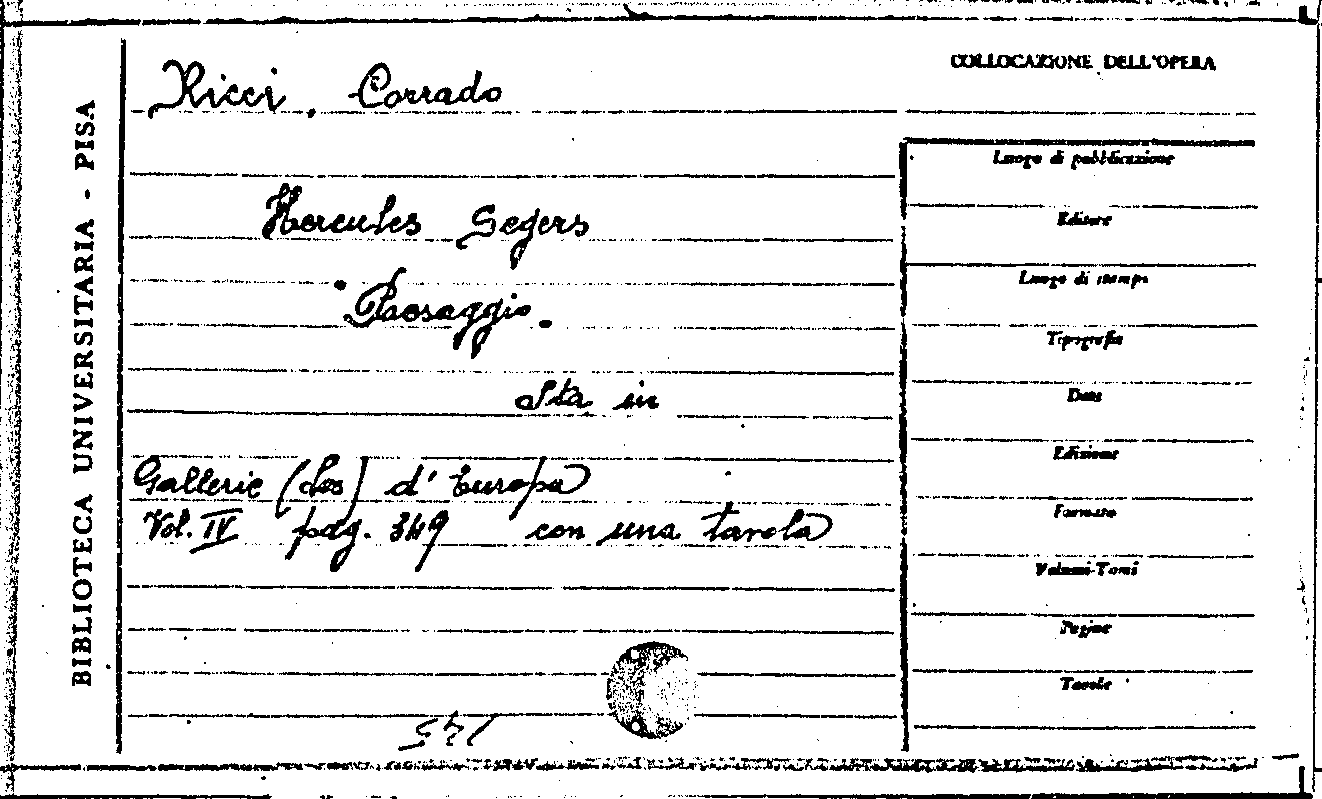 COLLOCAZIONE DELL'OPERA
Ricci, Corrado
BIBLIOTECA UNIVERSITARIA - PISA
Hercules Segers
Paesaggio.
Sta in
Gallerie (Les) d'Europa
Vol. IV pag. 349 con una tavola
Luogo di pubblicazione
Editore
Luogo di stampa
Tipografia
Data
Edizione
Formato
Volumi-Tomi
Pagine
Tavole